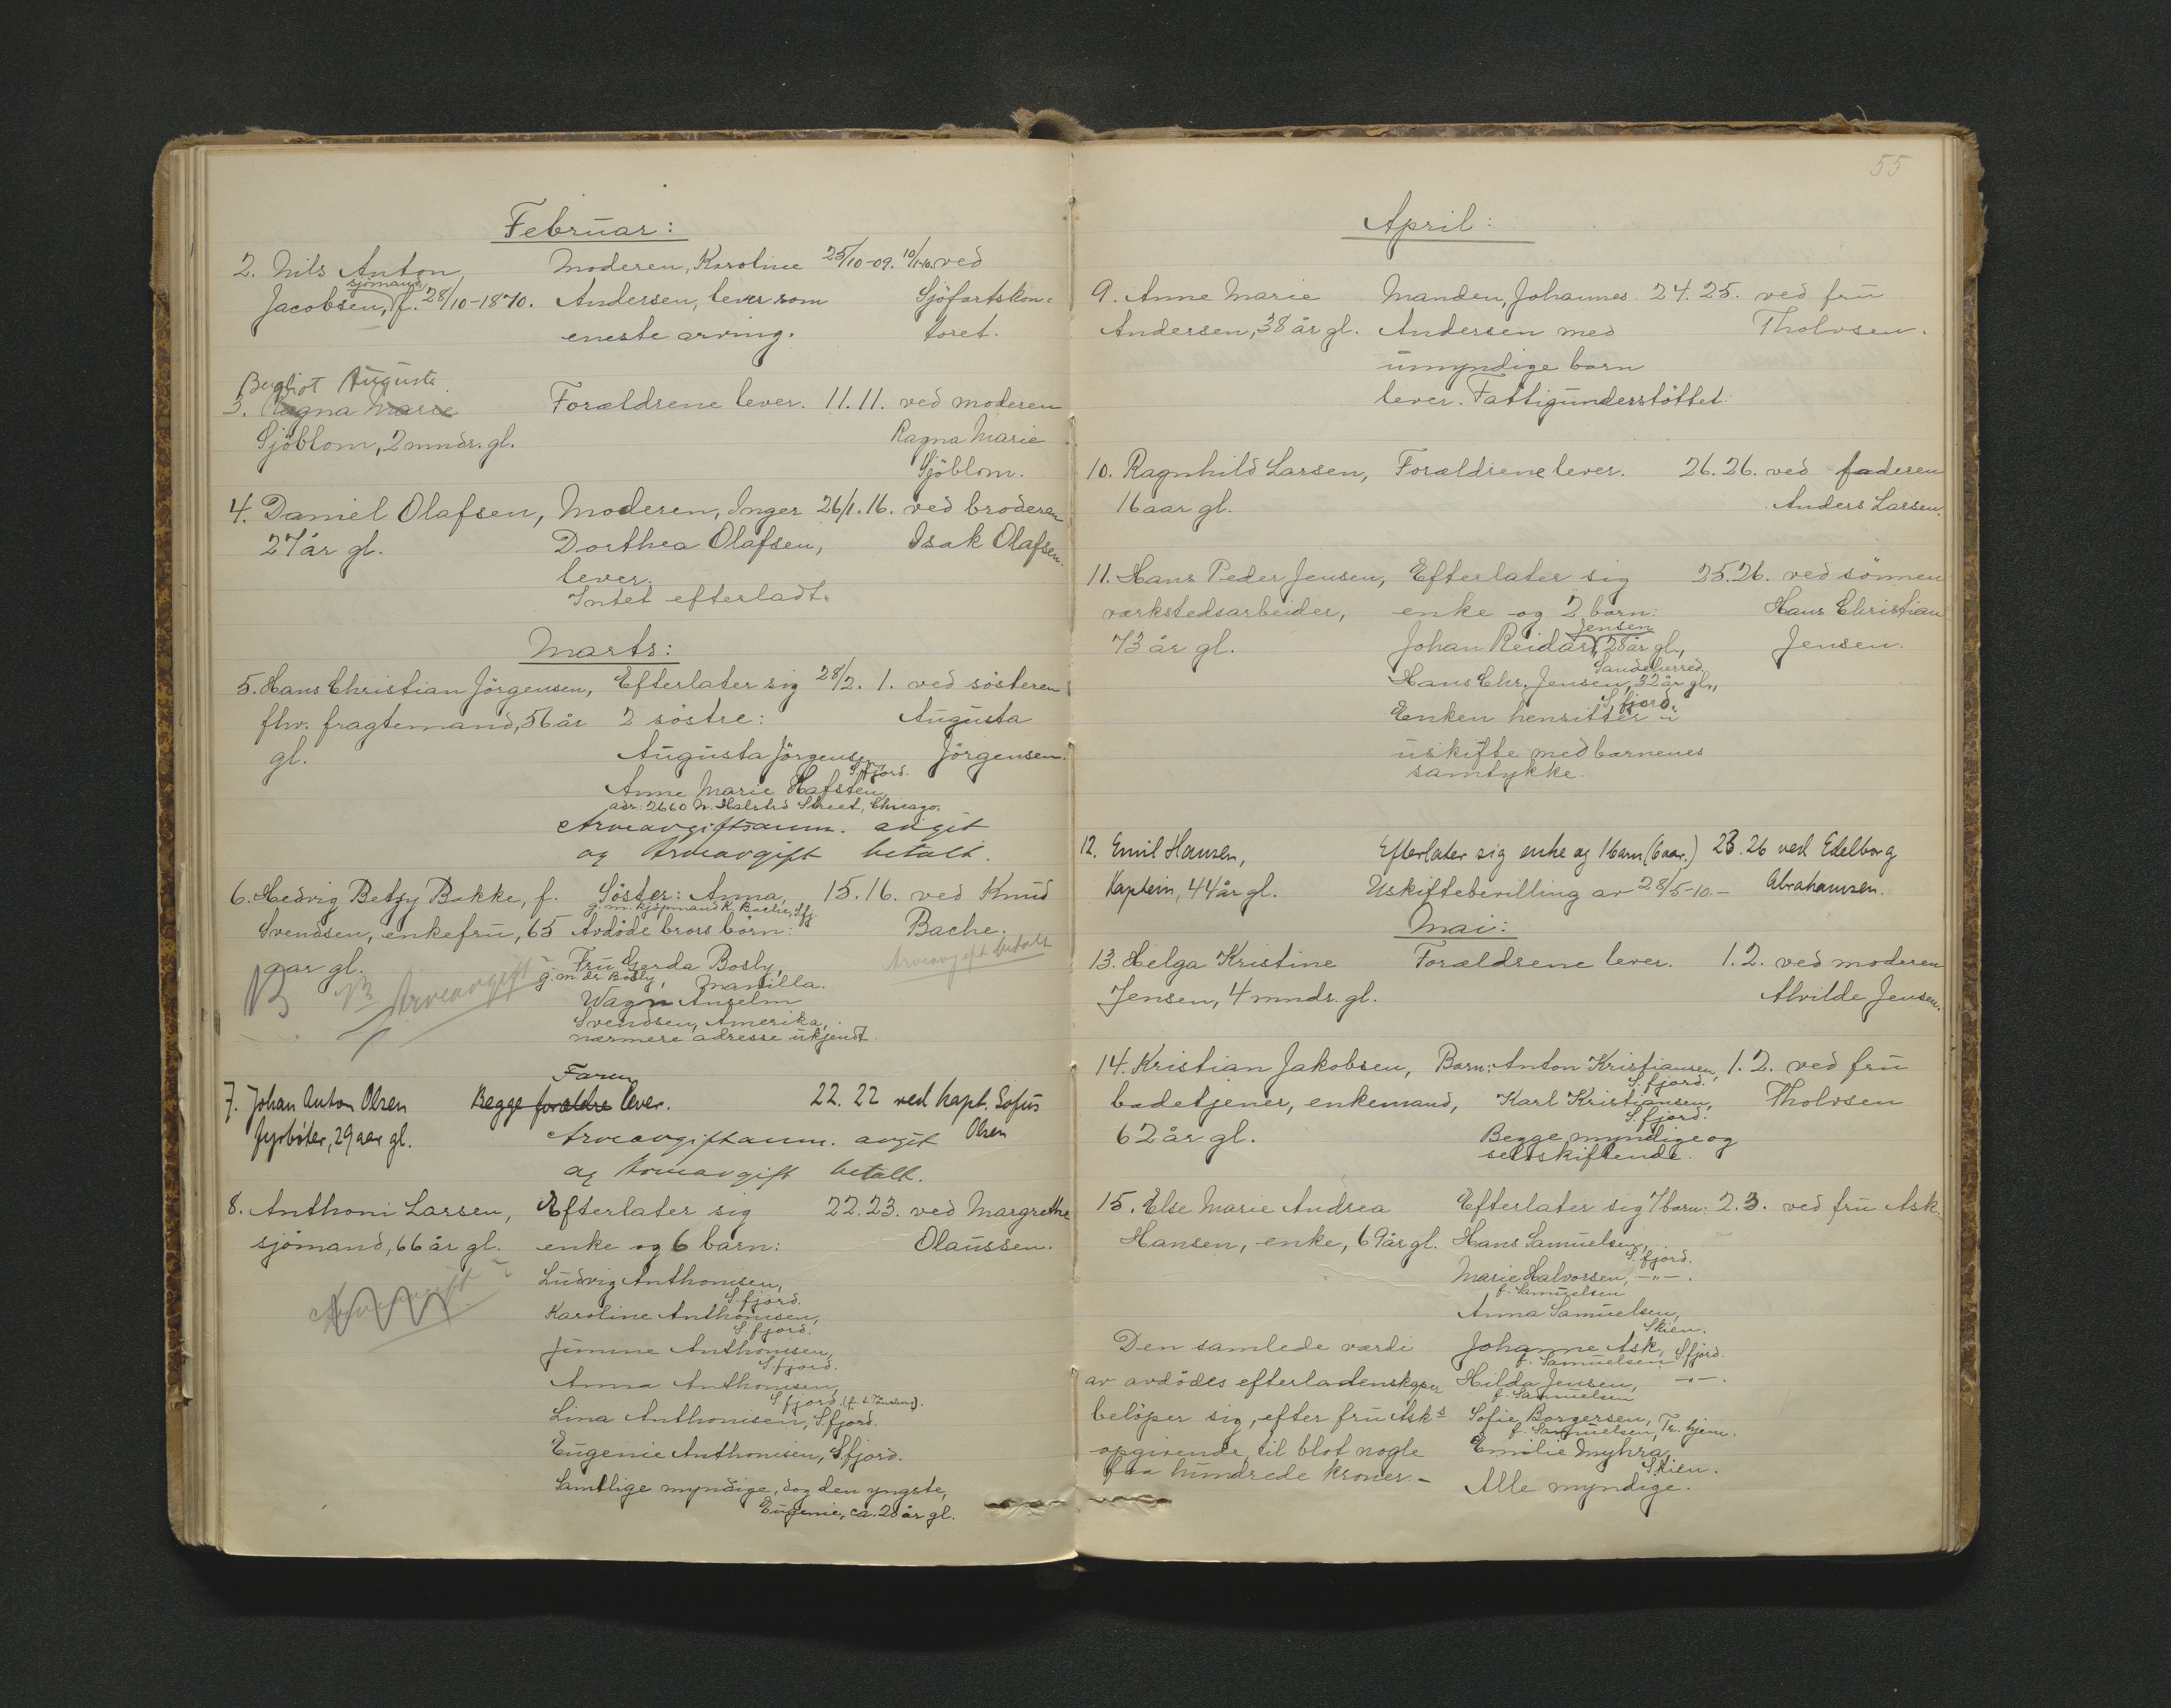 Februar:
2. Nils Anton Moderen, Karoline 25/10-09. 10/1-10. ved
sjömand,
Jacobsen, f. 28/10-1870. Andersen, lever som Sjöfartskon-
eneste arving. toret.
Bergliot Augusta
3. Ragna Marie Forældrene lever. 11. 11. ved moderen
Sjöblom, 2 mndr. gl. Ragna Marie
Sjöblom.
4. Daniel Olafsen, Moderen, Inger 26/1. 16. ved broderen
27 år gl. Dorthea Olafsen, Isak Olafsen.
lever.
Intet efterladt.
Marts:
5. Hans Christian Jörgensen, Efterlater sig 28/2. 1. ved søsteren
fhv. fragtemand, 56 år 2 søstre: Augusta
gl. Augusta Jörgensen Jörgensen.
S.fjord.
Anne Marie Hafsten,
adr: 2660 N. Halsted Street, Chicago.
Arveavgiftsanm. avgit
og Arveavgift betalt.
6. Hedvig Betzy Bakke, f. Söster: Anna, 15. 16. ved Knud
g. m. kjøpmand K. Bache, Sfj.
Svendsen, enkefru, 65 Avdöde brors börn: Bache.
aar gl. Fru Gerda Bosly, Arveavgift betalt
g. m. dr. Bosly, Manilla.
Arveavgift
Wagn Anselm
Svendsen, Amerika,
nærmere adresse ukjendt.
Faren
7. Johan Anton Olsen Begge forældre lever. 22. 22 ved kapt. Sofus
fyrbøter, 29 aar gl. Arveavgiftsanm. avgit Olsen
og Arveavgift betalt.
8. Anthoni Larsen, Efterlater sig 22. 23. ved Margrethe
sjömand, 66 år gl. enke og 6 barn: Olaussen.
Arveavgift
Ludvig Anthonisen,
S.fjord.
Karoline Anthonisen,
S.fjord.
Jimine Anthonisen,
S.fjord.
Anna Anthonisen,
S.fjord.
Lina Anthonisen, S.fjord.
Eugenie Anthonisen, S.fjord.
Samtlige myndige, dog den yngste,
Eugenie, ca. 20 år gl.
55
April:
9. Anne Marie Manden, Johannes 24. 25. ved fru
Andersen, 38 år gl. Andersen med Tholvsen.
umyndige barn
lever. Fattigunderstöttet.
10. Ragnhild Larsen, Forældrene lever. 26. 26. ved faderen
16 aar gl. Anders Larsen.
11. Hans Peder Jensen, Efterlater sig 25. 26. ved sønnen
verkstedsarbeider, enke og 2 barn: Hans Christian
Jensen
73 år gl. Johan Reidar, 28 år gl., Jensen.
Sandeherred,
Hans Chr. Jensen, 32 år gl.,
S.fjord.
Enken hensitter i
uskifte med barnenes
samtykke.
12. Emil Hansen, Efterlater sig enke og 1 barn (6 aar.) 23. 26 ved Edelborg
Kaptein, 44 år gl. Uskiftebevilling av 28/5-10.- Abrahamsen.
Mai:
13. Helga Kristine Forældrene lever. 1. 2. ved moderen
Jensen, 4 mnds. gl. Alvilde Jensen.
14. Kristian Jakobsen, Barn: Anton Kristiansen, 1. 2. ved fru
S.fjord.
badetjener, enkemand, Karl Kristiansen, Tholvsen
S.fjord.
62 år gl. Begge myndige og
selvskiftende.
15. Else Marie Andrea Efterlater sig 7 barn: 2. 3. ved fru Ask.
Hansen, enke, 69 år gl. Hans Samuelsen,
S.fjord.
Marie Halvorsen, -"-.
f. Samuelsen
Anna Samuelsen,
Skien.
Den samlede værdi Johanne Ask,
f. Samuelsen S.fjord.
av avdödes efterladenskaper Hilda Jensen, -"-.
f. Samuelsen
belöper sig, efter fru Asks Sofie Borgersen,
f. Samuelsen, Tr.hjem.
opgivende, til blot nogle Emilie Myhra,
Skien.
faa hundrede kroner.- Alle myndige.